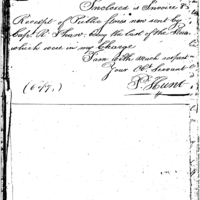 Inclosed is Invoice &
Receipt of Public now sent by
Capt. R. being the last of the
which were in my Charge
I am with much respect
Your Obt. Servant
P. Hunt